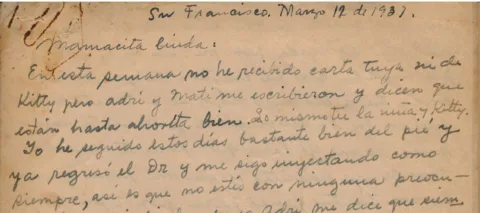 Sn Francisco. Marzo 12 de 1931.
Mamacita linda:
En esta semana no he recibido carta tuya ni de
Kitty pero adri y Mati me escribieron y dicen que
están hasta ahora bien. Lo mismo tu la niña y Kitty.
Yo he seguido estos días bastante bien del pié, y
ya regresó el Dr y me sigo inyectando como
siempre, así es que no estés con ninguna preocu-
Adri me dice que siem